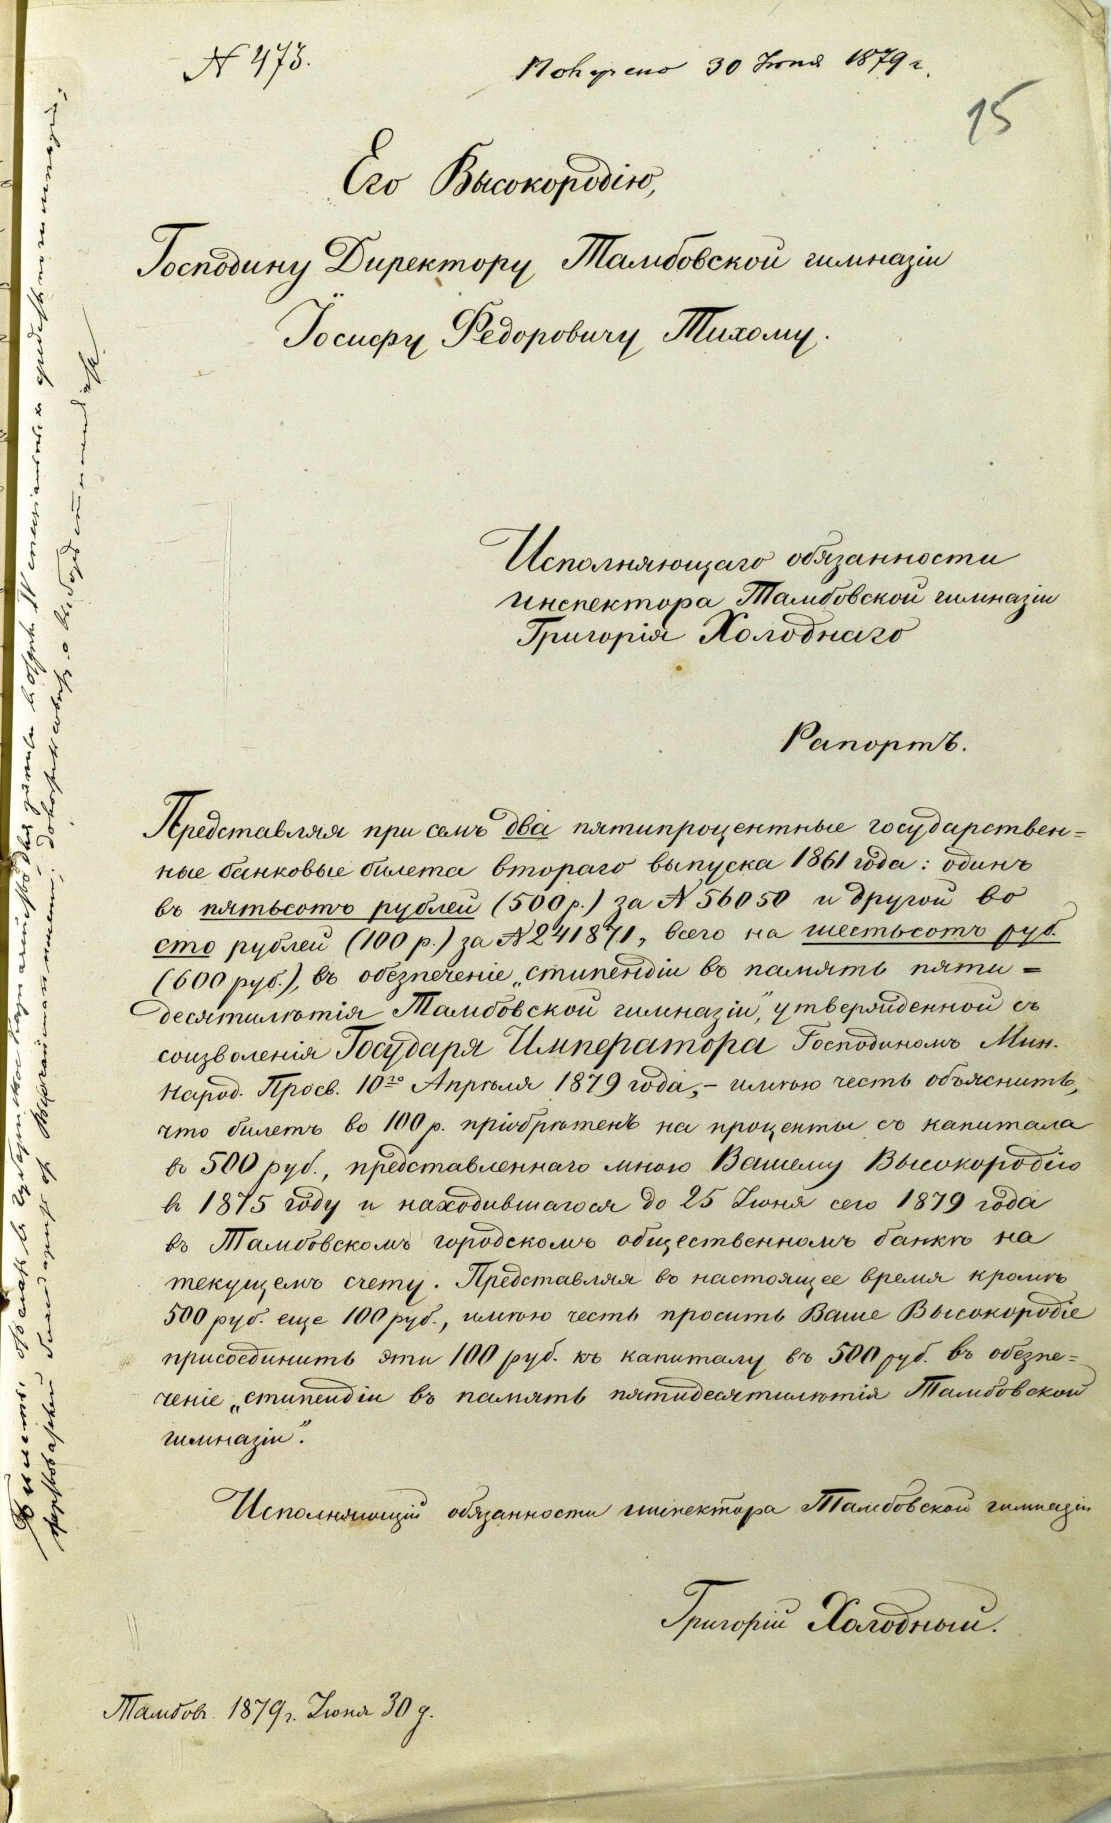 № 473.
Получено 30 Іюня 1879 г.
15
Его Высокородію,
Господину Директору Тамбовской гимназіи
Іосифу Федоровичу Тихому.
Исполняющаго обязанности
инспектора Тамбовской гимназіи
Григорія Холоднаго
Рапортъ.
Представляя при семъ два пятипроцентные государствен=
ные банковые билета втораго выпуска 1861 года: одинъ
въ пятьсотъ рублей (500 р.) за № 56050 и другой во
сто рублей (100 р.) за № 241871, всего на шестьсотъ руб.
(600 руб.), въ обезпеченіе „стипендіи въ память пяти=
десятилѣтія Тамбовской гимназіи", утвержденной съ
соизволенія Государя Императора Господиномъ Мин.
Народ. Просв. 10го Апрѣля 1879 года, – имѣю честь объяснить,
что билетъ во 100 р. пріобрѣтенъ на проценты съ капитала
въ 500 руб., представленнаго мною Вашему Высокородію
въ 1875 году и находившагося до 25 Іюня сего 1879 года
въ Тамбовскомъ городскомъ общественномъ банкѣ на
текущемъ счету. Представляя въ настоящее время кромѣ
500 руб. еще 100 руб., имѣю честь просить Ваше Высокородіе
присоединить эти 100 руб. къ капиталу въ 500 руб. въ обезпе=
ченіе „стипендіи въ память пятидесятилѣтія Тамбовской
гимназіи".
Исполняющій обязанности инспектора Тамбовской гимназіи
Григорій Холодный.
Тамбовъ. 1879 г. Іюня 30 д.